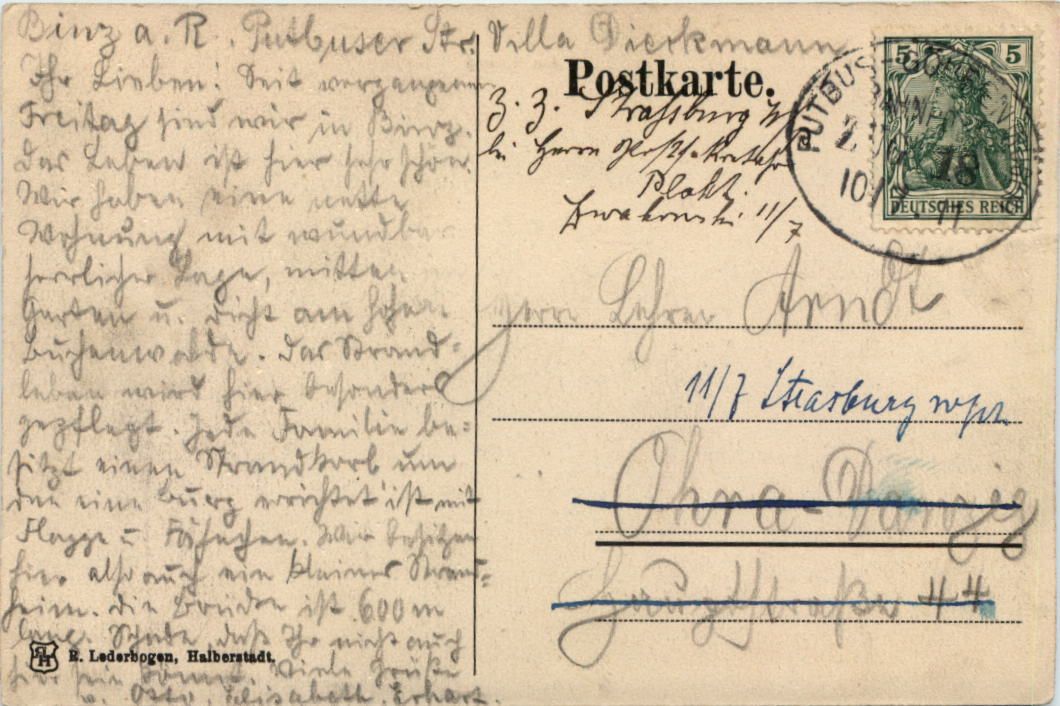 Binz a. R. Putbuser Str. Villa Dieckmann
Ihr Lieben! Seit vergangenen
Freitag sind wir in Binz.
Das Leben ist hier sehr schön.
Wir haben eine nette
Wohnung mit wundbar
herrlicher Lage, mitten
Garten u. dicht am hohen
Buchenwalde. Das Strand-
leben wird hier besonders
gepflegt. Jede Familie be-
sitzt einen Strandkorb um
den eine Burg errichtet ist mit
Flagge u. Fähnchen. Wir besitzen
hier also auch ein kleines Strand-
heim. Die Brücke ist 600 m
lang. Schade, daß Ihr nicht auch
hier sein könnt. Viele Grüße
v. Otto, Elisabeth, Erhart.
R. Lederbogen, Halberstadt.
Postkarte.
z. Z. Strassburg
bei Herrn
11/7
5 5
DEUTSCHES REICH
PUTBUS-GÖHREN
BAHN
ZUG 18
10/7 11
Herrn Lehrer Arndt
11/7 Strasburg wpr.
Ohra-Danzig
Hauptstraße 44